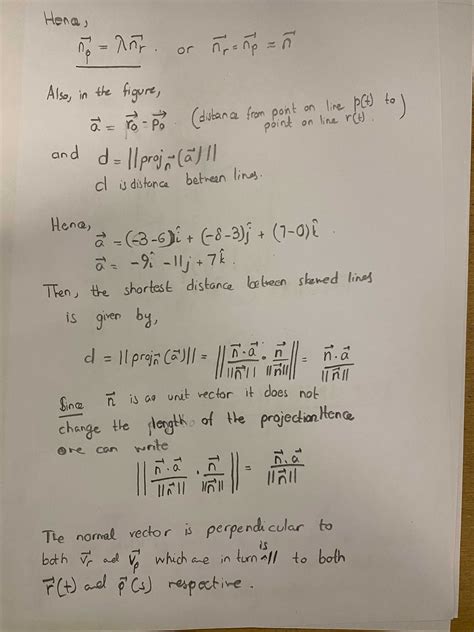 Hence,
n⃗p = λn⃗r . or n⃗r = n⃗p = n⃗
Also, in the figure,
a⃗ = r⃗o - p⃗o (distance from point on line p(t) to
point on line r(t).)
and d = ||proj n⃗ (a⃗)||
d is distance between lines.
Hence,
a⃗ = (-3-6)î + (-8-3)ĵ + (7-0)k̂.
a⃗ = -9î -11ĵ + 7k̂.
Then, the shortest distance between skewed lines
is given by,
d = ||proj n⃗ (a⃗)|| = || n⃗·a⃗/||n⃗|| · n⃗/||n⃗|| || = n⃗·a⃗/||n⃗||
Since n⃗ is as unit vector it does not
change the length of the projection. Hence
one can write
|| n⃗·a⃗/||n⃗|| · n⃗/||n⃗|| || = n⃗·a⃗/||n⃗||
The normal vector is perpendicular to
both v⃗r and v⃗p which are in turn is || to both
r⃗(t) and p⃗(s) respective.